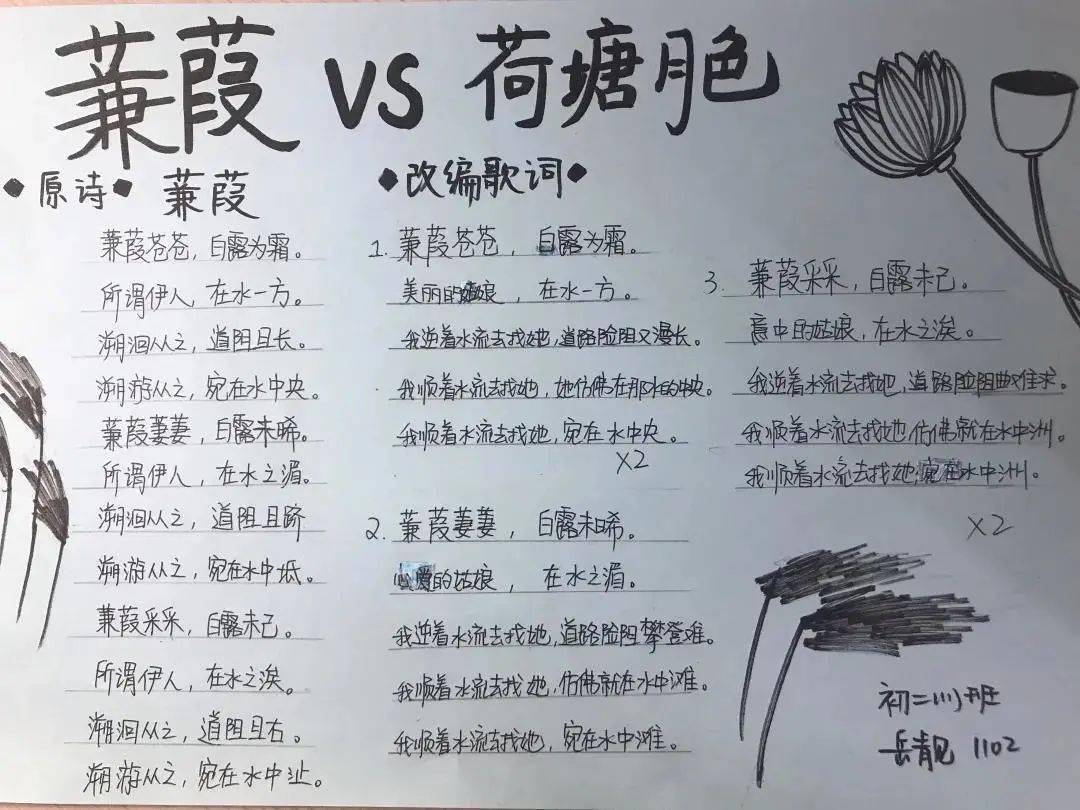 蒹葭 VS 荷塘月色
◆原诗◆ 蒹葭
蒹葭苍苍，白露为霜。
所谓伊人，在水一方。
溯洄从之，道阻且长。
溯游从之，宛在水中央。
蒹葭萋萋，白露未晞。
所谓伊人，在水之湄。
溯洄从之，道阻且跻
溯游从之，宛在水中坻。
蒹葭采采，白露未已。
所谓伊人，在水之涘。
溯洄从之，道阻且右。
溯游从之，宛在水中沚。
◆改编歌词◆
1. 蒹葭苍苍，白露为霜。
美丽的姑娘，在水一方。
我逆着水流去找她，道路险阻又漫长。
我顺着水流去找她，她仿佛在那水的中央。
我顺着水流去找她，宛在水中央。
X2
2. 蒹葭萋萋，白露未晞。
心爱的姑娘，在水之湄。
我逆着水流去找她，道路险阻攀登难。
我顺着水流去找她，仿佛就在水中滩。
我顺着水流去找她，宛在水中滩。
3. 蒹葭采采，白露未已。
意中的姑娘，在水之涘。
我逆着水流去找她，道路险阻曲难求。
我顺着水流去找她，仿佛就在水中洲。
我顺着水流去找她，宛在水中洲。
X2
初二(1)班
岳靓 1102